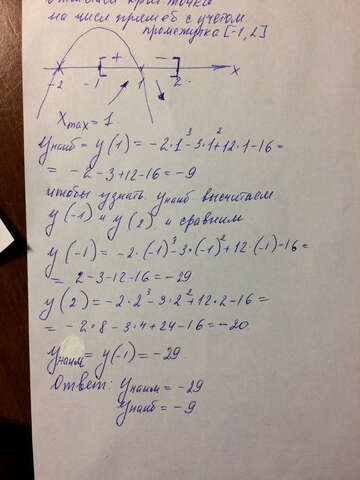 на числ. прям. её с учётом
промежутка [-1, 2]
+ -
-2 -1 1 2 x
Xmax = 1.
Yнаиб = y(1) = -2·1³-3·1²+12·1-16=
= -2-3+12-16=-9
чтобы узнать Yнаиб высчитаем
y(-1) и y(2) и сравним
y(-1) = -2·(-1)³-3·(-1)²+12·(-1)-16=
= 2-3-12-16=-29
y(2) = -2·2³-3·2²+12·2-16=
= -2·8-3·4+24-16=-20
Yнаим= y(-1) = -29.
Ответ: Yнаим = -29
Yнаиб = -9